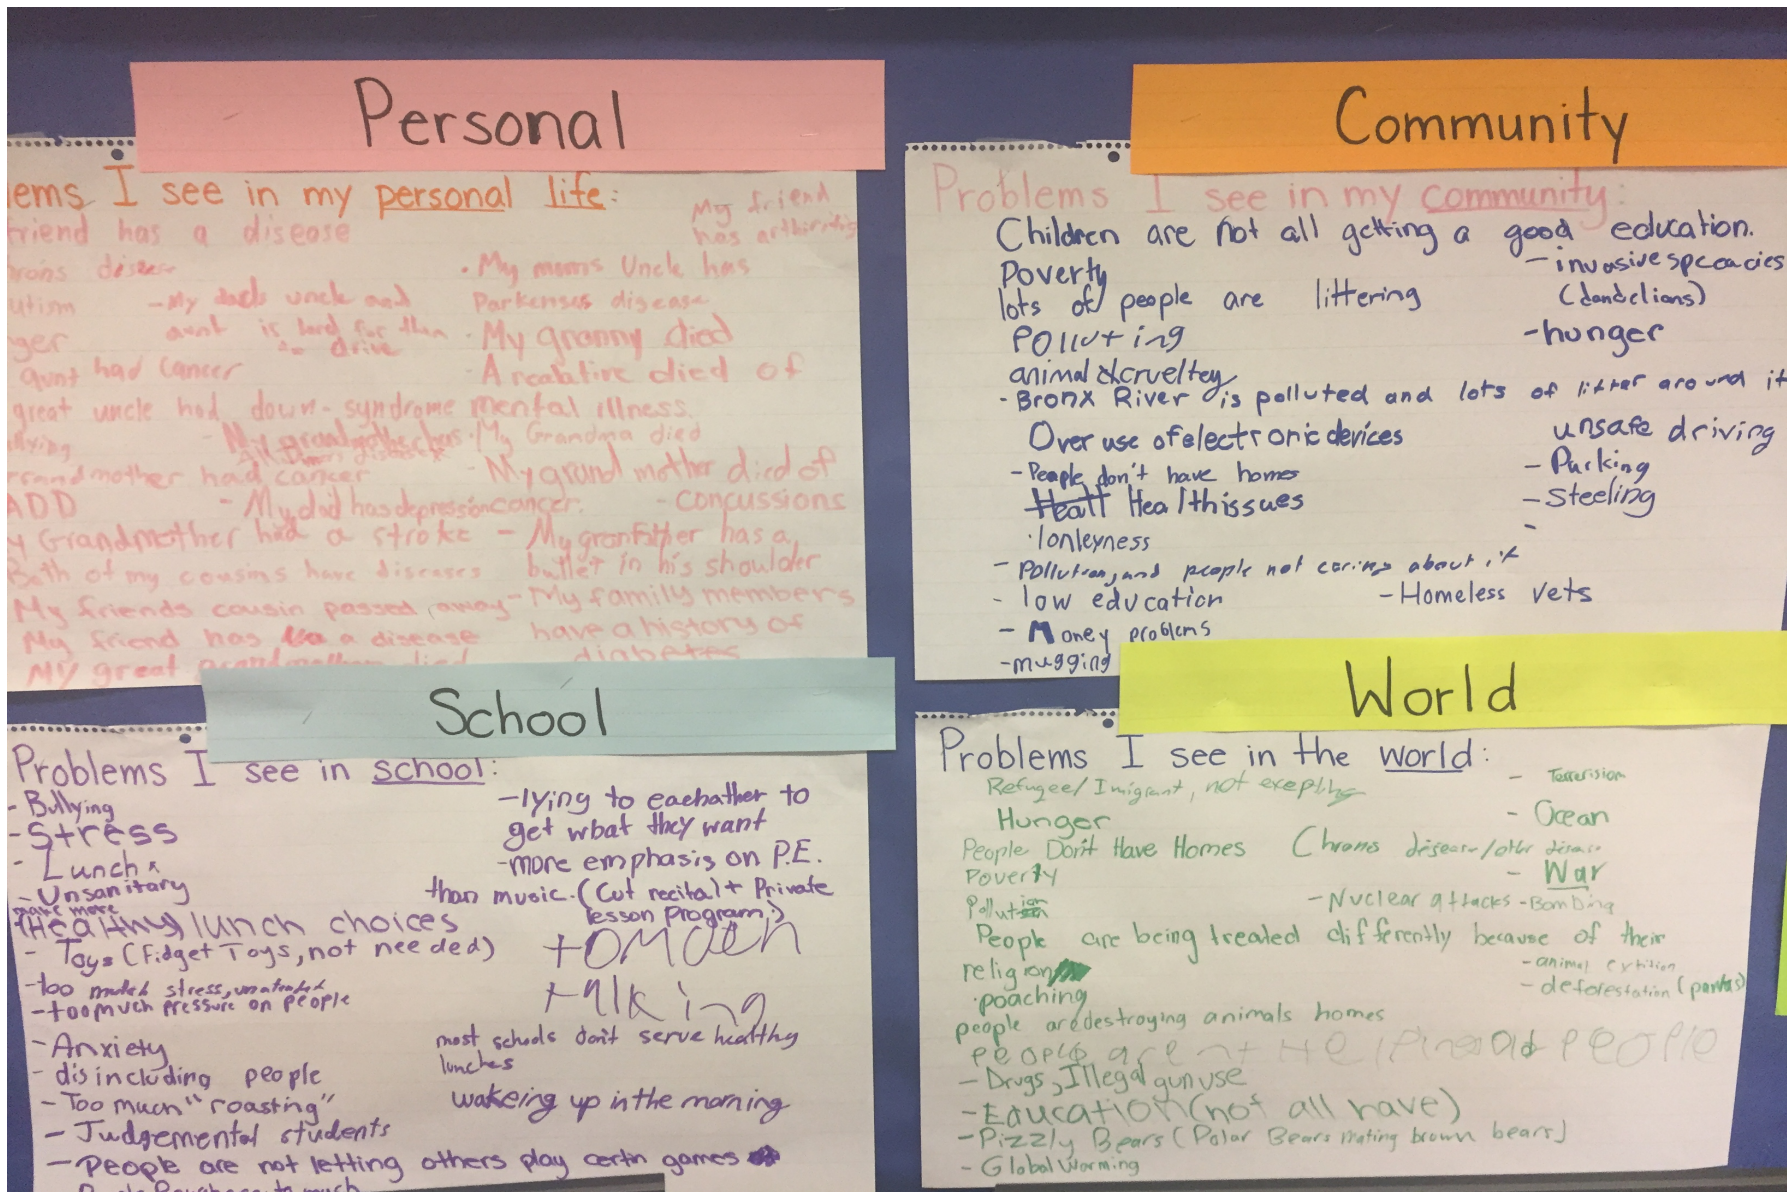 Personal
ems I see in my personal life:
friend has a disease
My friend
has
disease
- My dads uncle and
aunt is hard for them
to drive
aunt had cancer
great uncle had down-syndrome
- My grandmother has
grandmother had cancer
ADD
- My dad has depression
Grandmother had a stroke
Both of my cousins have diseases
My friends cousin passed away
My friend has a disease
My great grandmother died
• My moms Uncle has
Parkenses disease
• My granny died
• A realative died of
mental illness.
• My Grandma died
- My grand mother died of
cancer.
- Concussions
- My granfather has a
bullet in his shoulder
- My family members
have a history of
diabetes
Community
Problems I see in my community:
Children are not all getting a good education.
Poverty
lots of people are littering
Polluting
animal crueltey
- Bronx River is polluted and lots of litter around it
Over use of electronic devices
- People don't have homes
Healt Health issues
• lonleyness
- Pollution, and people not caring about it
- low education
- Money problems
- mugging
- invasive specacies
(dandelians)
- hunger
unsafe driving
- Parking
- Steeling
-
- Homeless vets
School
Problems I see in school:
- Bullying
- Stress
- Lunch
- Unsanitary
make more
Healthy lunch choices
- Toys (Fidget Toys, not needed)
- too much stress,
- too much pressure on people
- Anxiety
- disincluding people
- Too much "roasting"
- Judgemental students
- People are not letting others play certin games
- lying to eachather to
get what they want
- more emphasis on P.E.
than music. (Cut recital + Private
lesson program.)
talking
most schools don't serve healthy
lunches
wakeing up in the morning
World
Problems I see in the world:
Refugee/Imigrant, not
Hunger
People Don't Have Homes
Poverty
Pollution
People are being treated differently because of their
religion
• poaching
people are destroying animals homes
People
- Drugs, Illegal gun use
- Education (not all have)
- Pizzly Bears (Polar Bears mating brown bears)
- Global Worming
- Terrerision
- Ocean
Chrons disease/other disease
- War
- Nuclear attacks - Bombing
- animal
- deforestation (pandas)